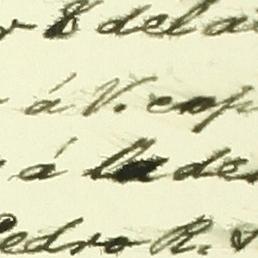 8 del
á V. cop
á la de
Pedro R.